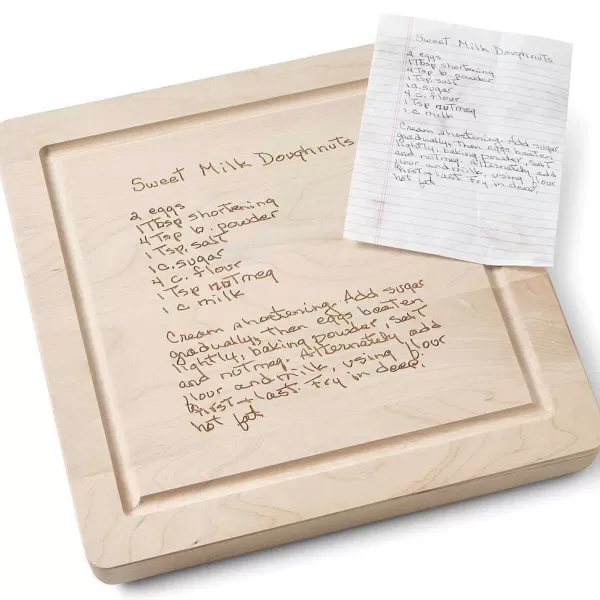 Sweet Milk Doughnuts
2 eggs
1 Tbsp shortening
4 Tsp b. powder
1 Tsp. salt
1 c. sugar
4 c. flour
1 Tsp nutmeg
1 c milk
Cream shortening. Add sugar
gradually, then eggs beaten
lightly, baking powder, salt
and nutmeg. Alternately add
flour and milk, using flour
first & last. Fry in deep,
hot fat
Sweet Milk Doughnuts
2 eggs
1 Tbsp shortening
4 Tsp b. powder
1 Tsp. salt
1 c. sugar
4 c. flour
1 Tsp nutmeg
1 c milk
Cream shortening. Add sugar
gradually, then eggs beaten
lightly, baking powder, salt
and nutmeg. Alternately add
flour and milk, using flour
first & last. Fry in deep,
hot fat